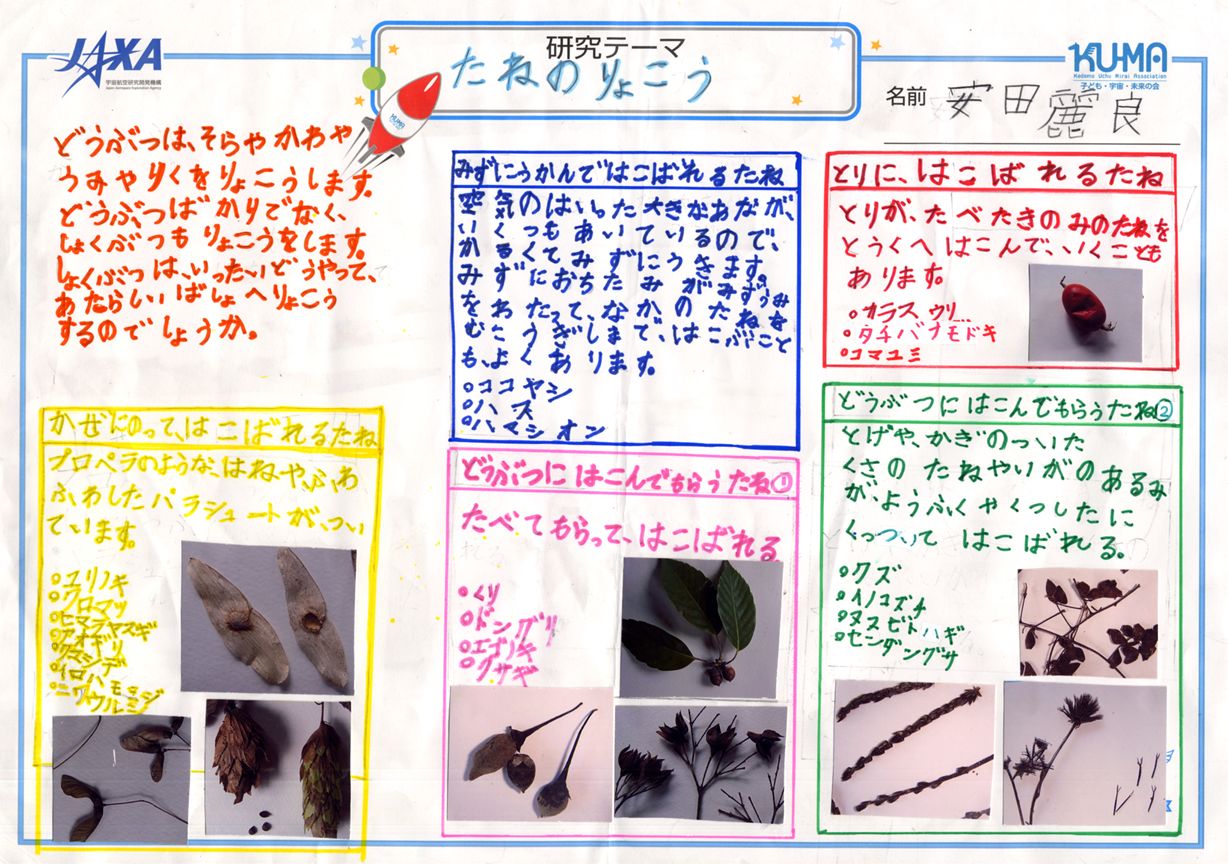 JAXA
宇宙航空研究開発機構
Japan Aerospace Exploration Agency
研究テーマ
たねのりょこう
KUMA
KUMA
Kodomo Uchu Mirai Association
子ども・宇宙・未来の会
名前 安田麗良
どうぶつは、そらやかわや
うみやりくをりょこうします。
どうぶつばかりでなく、
しょくぶつもりょこうをします。
しょくぶつは、いったいどうやって、
あたらしいばしょへりょこう
するのでしょうか。
みずにうかんではこばれるたね
空気のはいった大きなあなが、
いくつもあいているので、
かるくてみずにうきます。
みずにおちたみがみずうみ
をわたって、なかのたねを
むこうぎしまで、はこぶこと
も、よくあります。
○ココヤシ
○ハス
○ハマシオン
とりに、はこばれるたね
とりが、たべたきのみのたねを
とうくへはこんで、いくことも
あります。
○カラスウリ
○タチバナモドキ
○コマユミ
かぜにのって、はこばれるたね
プロペラのような、はねや、ふわ
ふわしたパラシュートが、つい
ています。
○ユリノキ
○クロマツ
○ヒマラヤスギ
○アオギリ
○クマシデ
○イロハモミジ
○ニワウルシ
どうぶつにはこんでもらうたね①
たべてもらって、はこばれる
○くり
○ドングリ
○エゴノキ
○クサギ
どうぶつにはこんでもらうたね②
とげや、かぎのついた
くさのたねやいがのあるみ
が、ようふくやくつしたに
くっついてはこばれる。
○クズ
○イノコズチ
○ヌスビトハギ
○センダングサ